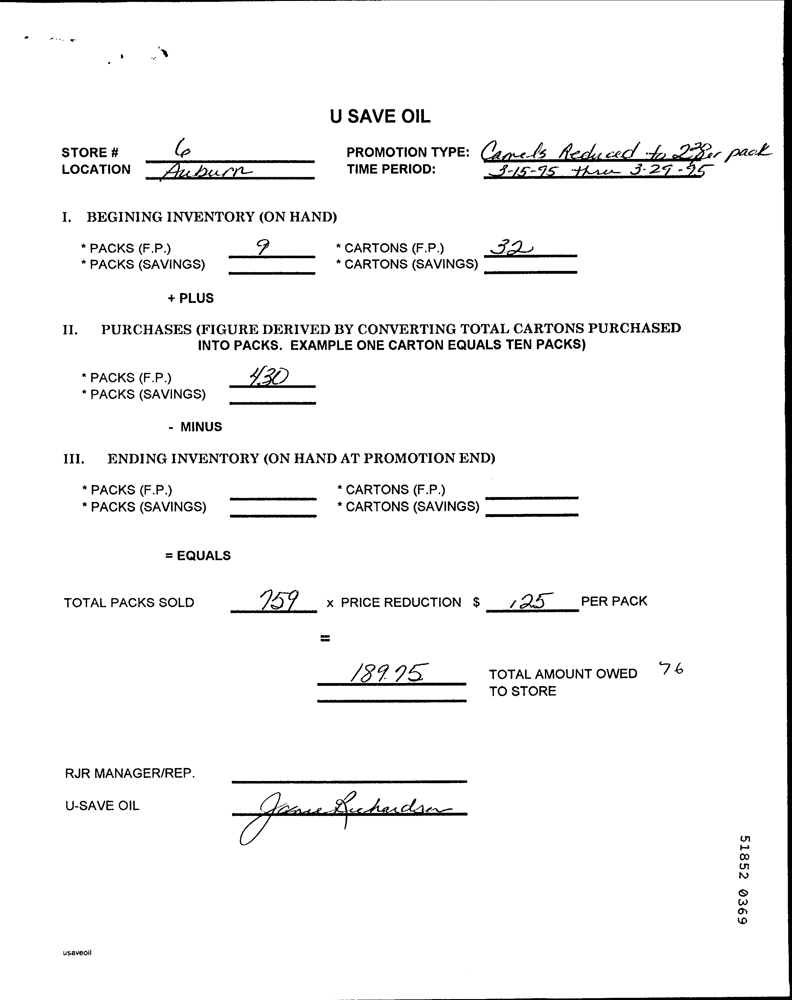 U SAVE OIL
STORE # 6 PROMOTION TYPE: Camels Reduced to 2.00 per pack
LOCATION Auburn TIME PERIOD: 3-15-95 thru 3-29-95
I. BEGINING INVENTORY (ON HAND)
* PACKS (F.P.) 9 * CARTONS (F.P.) 32
* PACKS (SAVINGS) * CARTONS (SAVINGS)
+ PLUS
II. PURCHASES (FIGURE DERIVED BY CONVERTING TOTAL CARTONS PURCHASED
INTO PACKS. EXAMPLE ONE CARTON EQUALS TEN PACKS)
* PACKS (F.P.) 430
* PACKS (SAVINGS)
- MINUS
III. ENDING INVENTORY (ON HAND AT PROMOTION END)
* PACKS (F.P.) * CARTONS (F.P.)
* PACKS (SAVINGS) * CARTONS (SAVINGS)
= EQUALS
TOTAL PACKS SOLD 759 x PRICE REDUCTION $ .25 PER PACK
=
189.75 TOTAL AMOUNT OWED 76
TO STORE
RJR MANAGER/REP.
U-SAVE OIL Janie Richardson
51852 0369
usaveoil